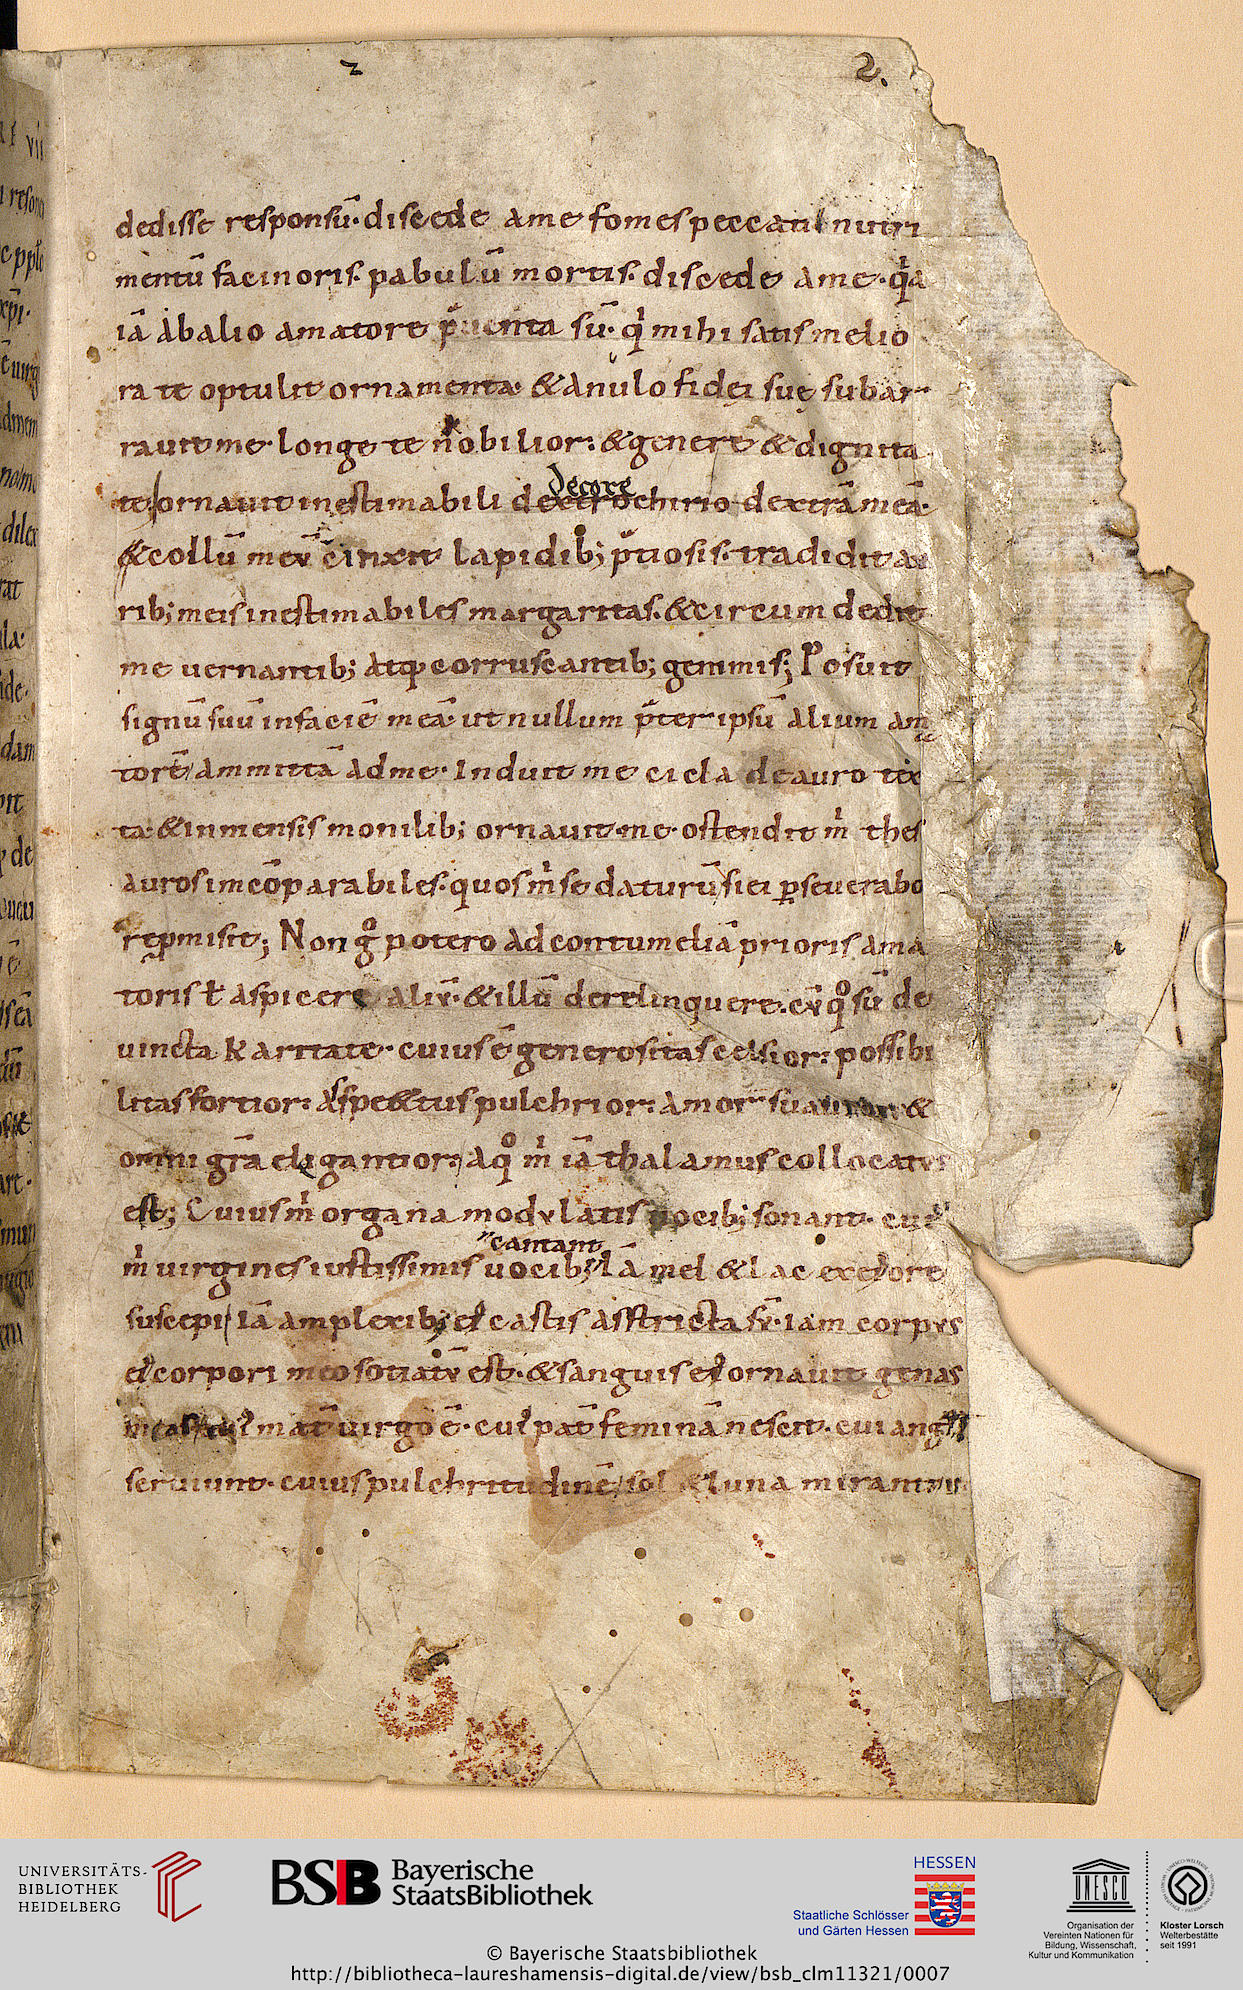 2
2.
dedisse responsū· discede ame fomes peccati nutri
mentū facinoris· pabulū mortis· discede ame· q̇a
iā abalio amatore p̄uenta sū· q̇ mihi satis melio
ra te optulit ornamenta· & anulo fidei suę subar
rauit me· longe te nobilior· & genere & dignita
te/ ornauit inestimabili dextrochirio dextrā meā·
decore
& collū meū cinxit lapidib; p̄tiosis· tradidit au
rib; meis inestimabiles margaritas· & circum dedit
me uernantib; atq; corruscantib; gemmis; Posuit
signū suū infaciē meā· ut nullum p̄ter ipsū alium ama
torē/ ammittā adme· Induit me cicla de auro tex
ta· & inmensis monilib; ornauit me· ostendit ṁ thes
auros incōparabiles· quos ṁ se daturū siei ꝑseuerabo
repmisit; Non g̊ potero ad contumeliā prioris ama
toris ł aspicere aliū· & illū derelinquere· cū q̊ sū de
uincta karitate· cuius ē generositas celsior· possibi
litas fortior· aspectus pulchrior· amor suauior &
omni gr̄a eligantior· aq̊ ṁ iā thalamus collocatus
est; Cuius ṁ organa modulatis uocib; sonant· cui'
cantant
ṁ uirgines iustissimis uocib; Iā mel & lac ex ei' ore
suscepi/ Iā amplexib; ei' castis asstricta sū· iam corpus
ei' corpori meo sotiatū est· & sanguis ei' ornauit genas
meas/ cui' mat̄ uirgo ē· cui' pat̄ feminā nescit· cui angli
seruiunt· cuius pulchritudinē/ sol & luna mirantur
UNIVERSITÄTS-
BIBLIOTHEK
HEIDELBERG
BSB Bayerische
StaatsBibliothek
HESSEN
Staatliche Schlösser
und Gärten Hessen
UNESCO
Organisation der
Vereinten Nationen für
Bildung, Wissenschaft,
Kultur und Kommunikation
Kloster Lorsch
Welterbestätte
seit 1991
© Bayerische Staatsbibliothek
http://bibliotheca-laureshamensis-digital.de/view/bsb_clm11321/0007